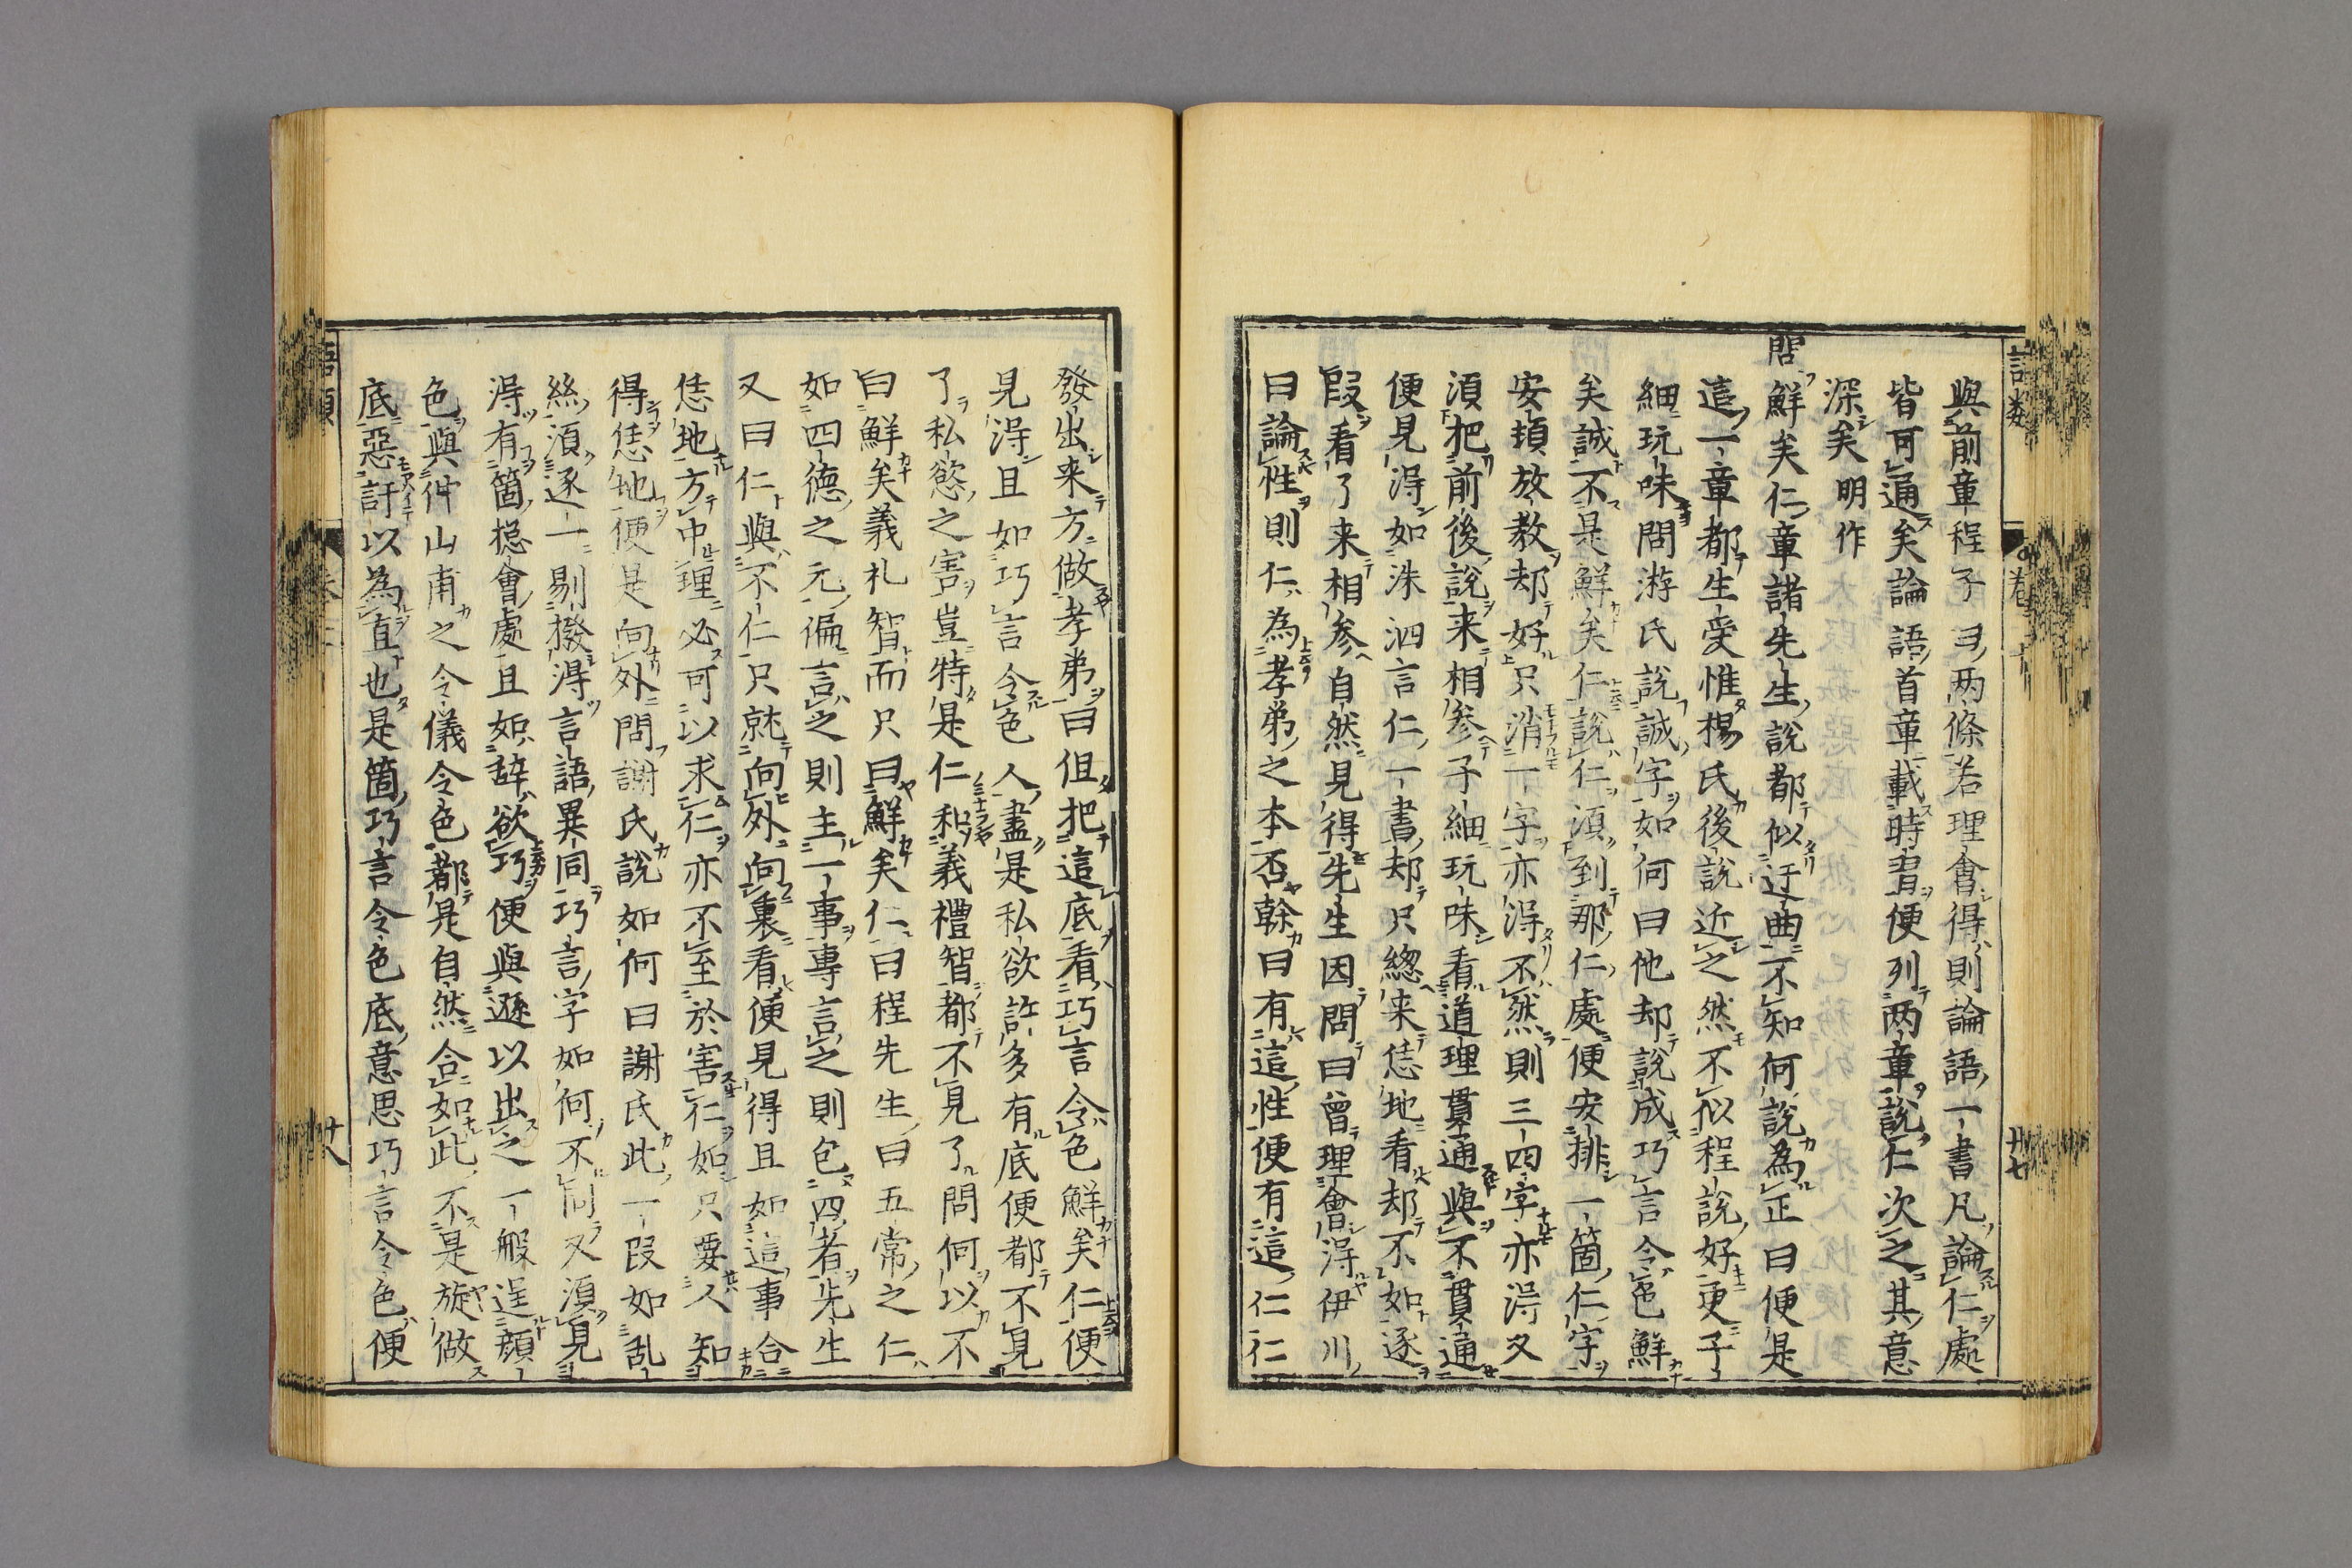 與前章程子ヨ两條若理會得則論語一書凡論仁處
皆可通矣論語首章載時習便列两章說仁次之其意
深矣明作
問鮮矣仁章諸先生說都似迂曲不知何說為正曰便是
這一章都生受惟楊氏後說近之然不似程說好更子
細玩味問游氏說誠字如何曰他却說成巧言令色鮮
矣誠不是鮮矣仁說仁須到那仁處便安排一箇仁字
安頓放教却好只消一字亦淂不然則三四字亦淂又
湏把前後說来相參子細玩味看道理貫通與不貫通
便見淂如洙泗言仁一書却只緫来恁地看却不如逐
段看了来相参自然見得先生因問曰曾理會淂伊川
曰論性則仁為孝弟之本否榦曰有這性便有這仁仁
發出来方做孝弟曰但把這底看巧言令色鮮矣仁便
見淂且如巧言令色人盡是私欲許多有底便都不見
了私慾之害豈特是仁和義禮智都不見了問何以不
曰鮮矣義礼智而只曰鮮矣仁曰程先生曰五常之仁
如四德之元偏言之則主一事專言之則包四者先生
又曰仁與不仁只就向外向裏看便見得且如這事合
恁地方中理必可以求仁亦不至於害仁如只要人知
得恁地便是向外問謝氏說如何曰謝氏此一段如乱
絲湏逐一剔撥淂言語異同巧言字如何不同又湏見
淂有箇緫會處且如辞欲巧便與遜以出之一般逞顏
色與仲山甫之令儀令色都是自然合如此不是旋做
底惡訐以為直也是箇巧言令色底意思巧言令色便
卷
廿七
廿八